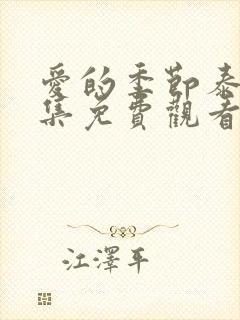 愛的季節泰
集免費觀看
江澤平